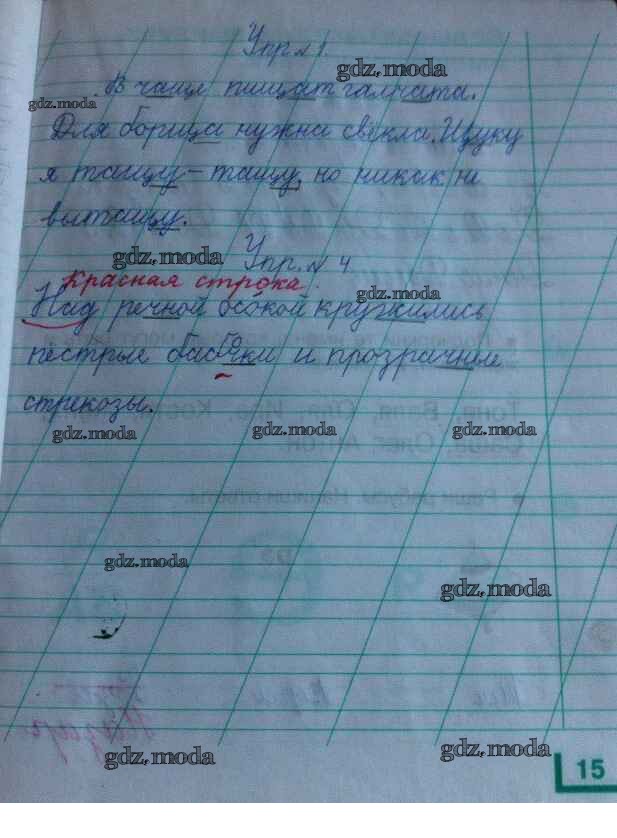 Упр. № 1.
gdz.moda
В чаще пищат галчата.
gdz.moda
Для борща нужна свекла. Щуку
я тащу - тащу, но никак не
вытащу.
gdz.moda
Упр. № 4
Красная строка.
gdz.moda
Над речной осокой кружились
пёстрые бабочки и прозрачные
стрекозы.
gdz.moda gdz.moda gdz.moda
gdz.moda
gdz.moda
gdz.moda gdz.moda
15